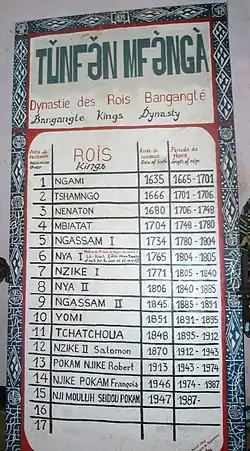 TŬNFƏ̌N MFƏ̀NGÀ
Dynastie des Rois Bangangté
Bangangte Kings Dynasty
ROIS
Kings
1 NGAMI 1635 1665-1701
2 TSHAMNGO 1666 1701-1706
3 NENATON 1680 1706-1748
4 MBIATAT 1704 1748-1780
5 NGASSAM I 1734 1780-1804
6 NYA I 1765 1804-1805
7 NZIKE I 1771 1805-1840
8 NYA II 1806 1840-1885
9 NGASSAM II 1845 1885-1891
10 YOMI 1851 1891-1895
11 TCHATCHOUA 1848 1895-1912
12 NZIKE II Salomon 1870 1912-1943
13 POKAM NJIKE Robert 1913 1943-1974
14 NJIKE POKAM François 1946 1974-1987
15 NJI MOULUH SEIDOU POKAM 1947 1987-
16
17